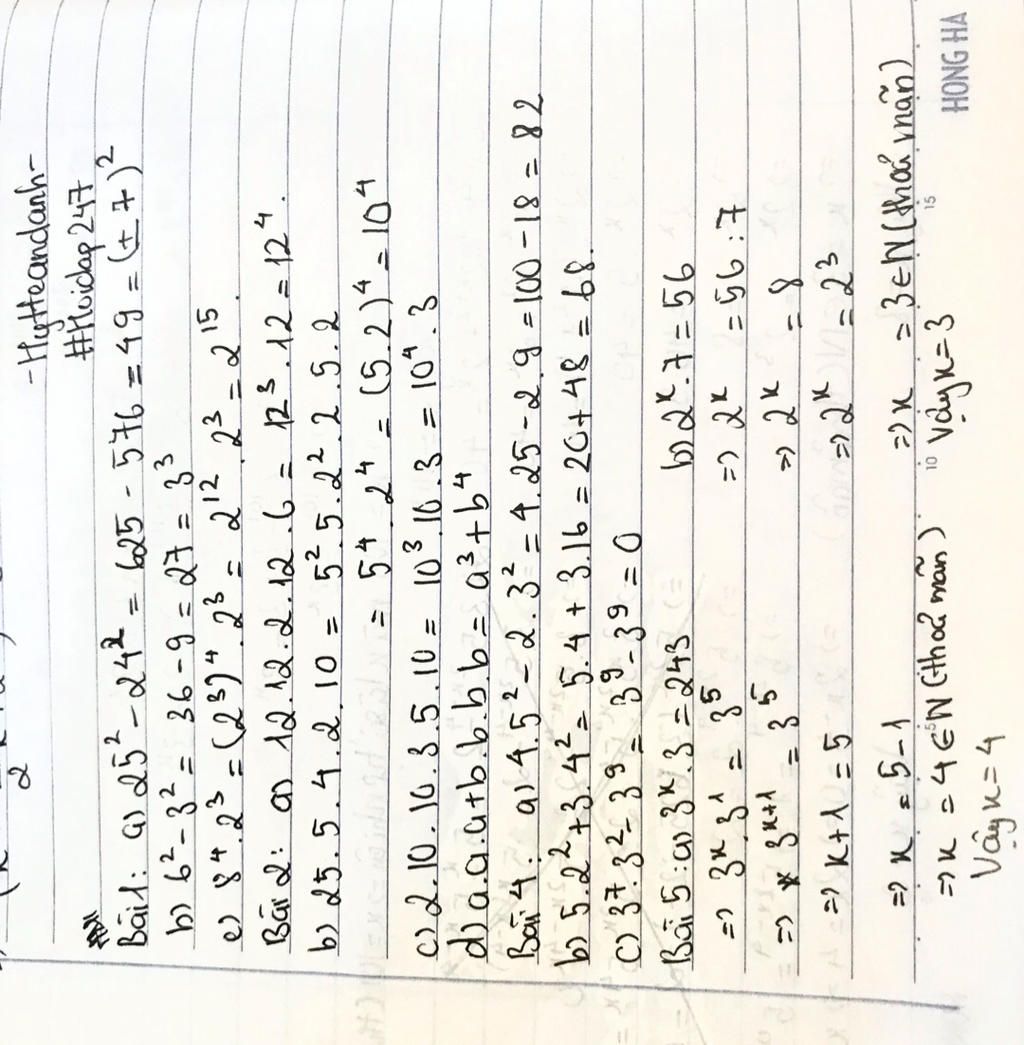 -Hytteandanh-
#Hoidap247
Bài 1: a) 25² - 24² = 625 - 576 = 49 = (± 7)²
b) 6² - 3² = 36 - 9 = 27 = 3³
e) 8⁴ . 2³ = (2³)⁴ . 2³ = 2¹² . 2³ = 2¹⁵.
Bài 2: a) 12.12.2.12.6 = 12³.12 = 12⁴.
b) 25.5.4.2.10 = 5².5.2².2.5.2
= 5⁴.2⁴ = (5.2)⁴ = 10⁴
c) 2.10.10.3.5.10 = 10³.10.3 = 10⁴.3
d) a.a.a+b.b.b.b = a³+b⁴
Bài 4: a) 4.5² - 2.3² = 4.25 - 2.9 = 100 - 18 = 82
b) 5.2²+3.4² = 5.4 + 3.16 = 20 + 48 = 68.
c) 3⁷.3² - 3⁹ = 3⁹ - 3⁹ = 0
Bài 5: a) 3ˣ.3 = 243 b) 2ˣ.7 = 56
=> 3ˣ.3¹ = 3⁵ => 2ˣ = 56:7
=> 3ˣ⁺¹ = 3⁵ => 2ˣ = 8
=> x+1 = 5 => 2ˣ = 2³
=> x = 5-1 => x = 3 ∈ N (thoả mãn)
=> x = 4 ∈ N (thoả mãn) Vậy x = 3
Vậy x = 4
5 10 15
HONG HA